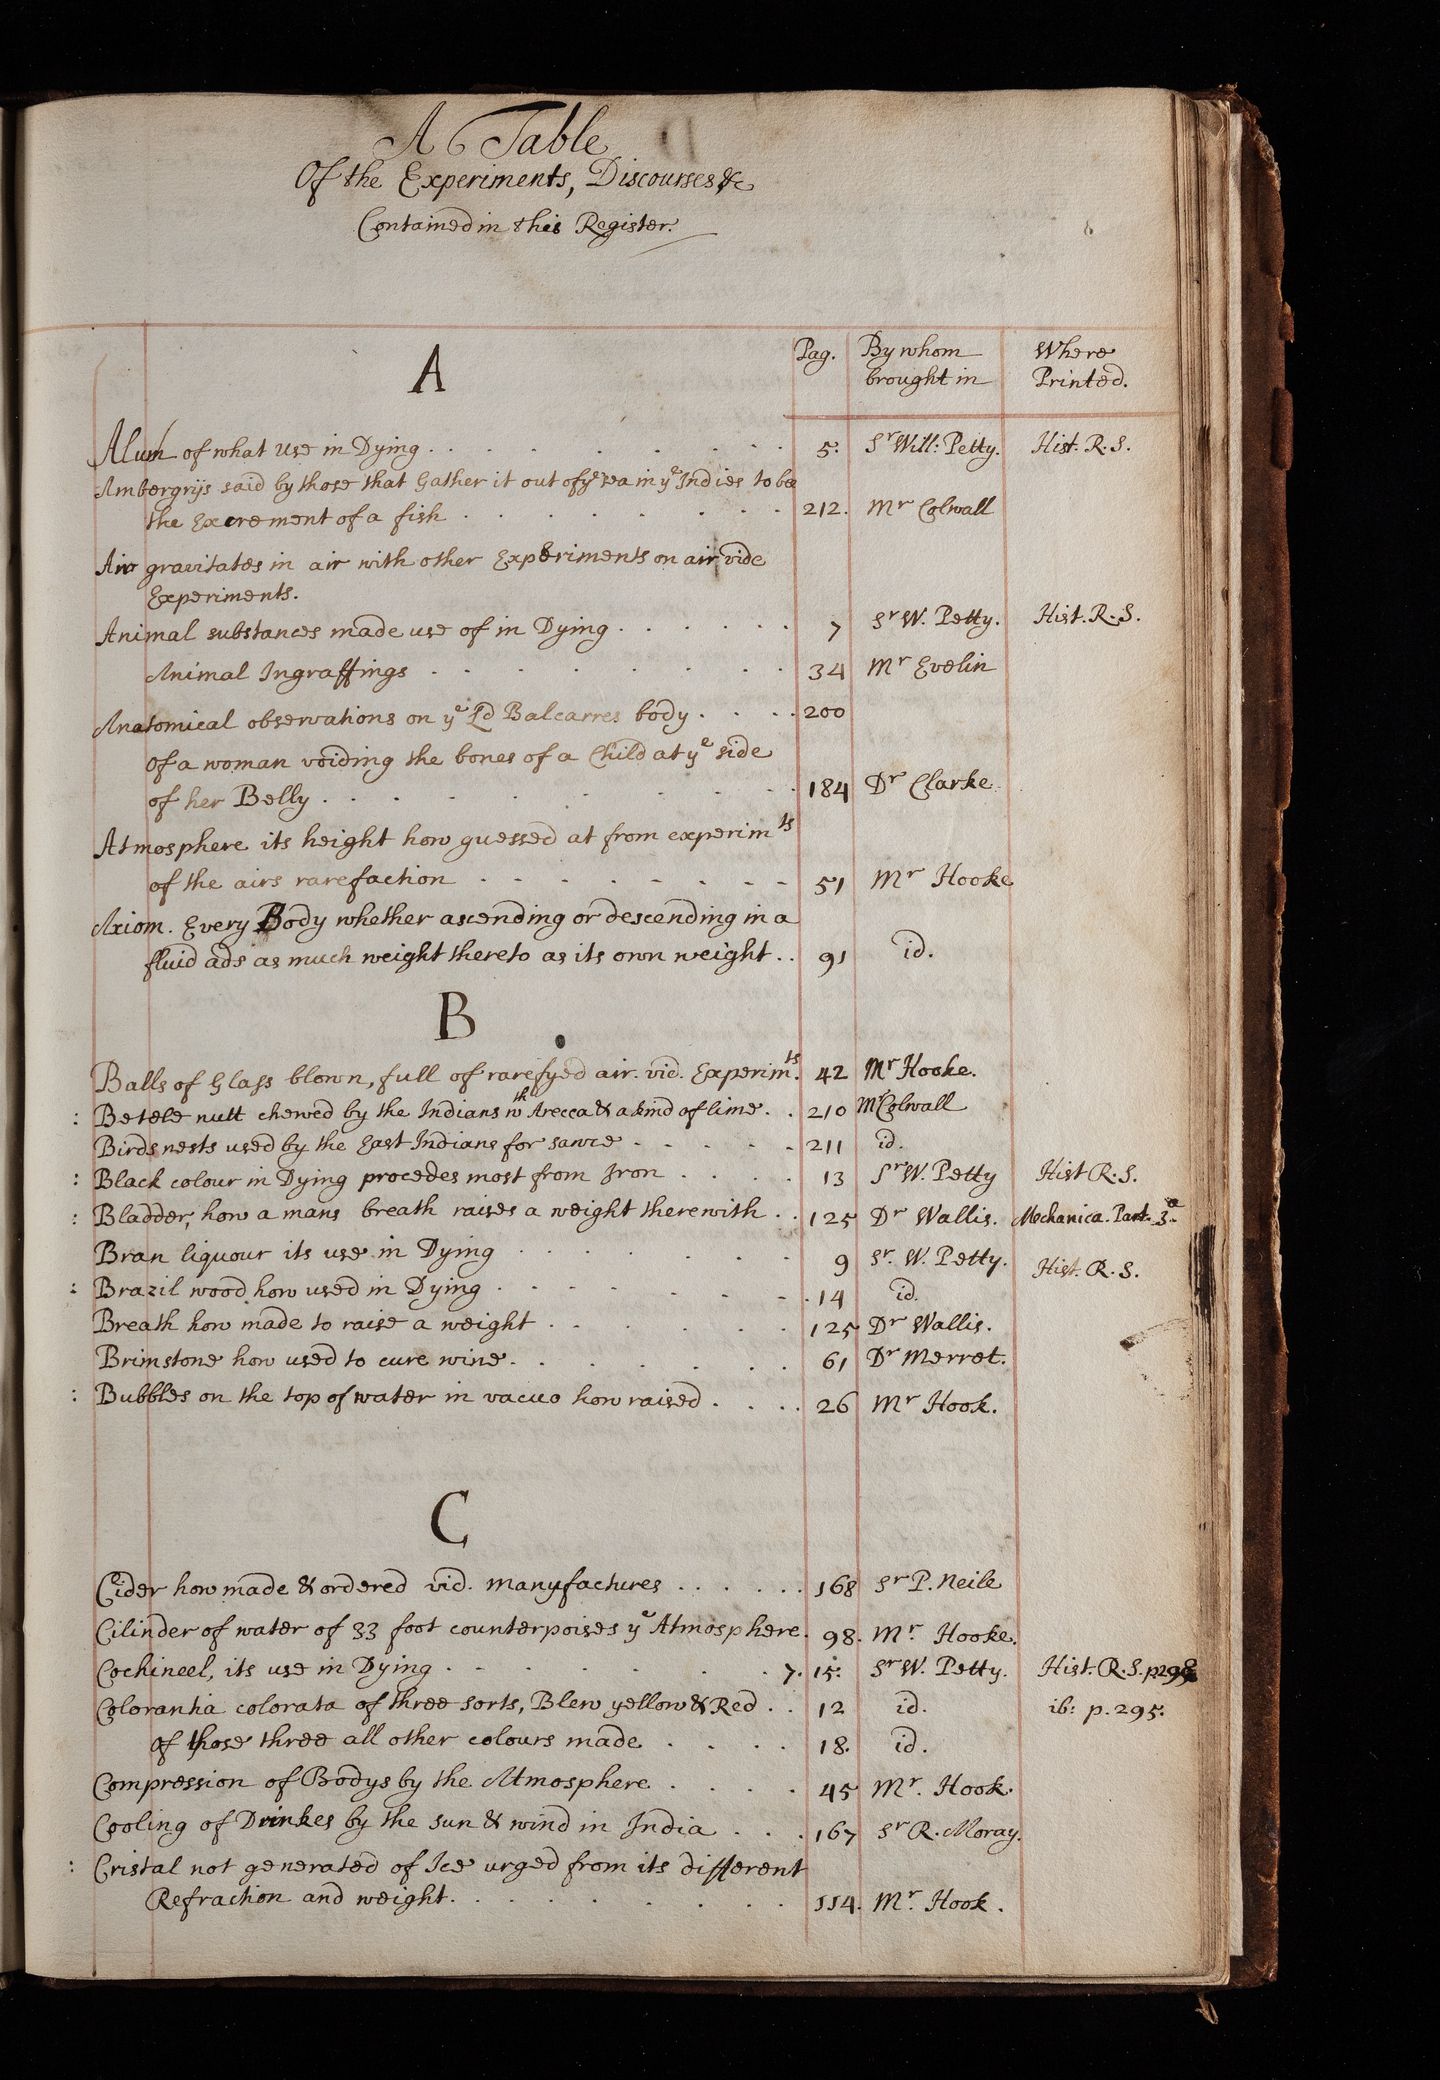 A Table
Of the Experiments, Discourses &c
Contained in this Register.
Pag. By whom brought in Where Printed.
A
Alum of what use in Dying . . . . . . . 5. Sr Will: Petty. Hist. R. S.
Ambergrijs said by those that Gather it out of ye sea in ye Indies to be
the Excrement of a fish . . . . . . . 212. Mr Colwall
Air gravitates in air with other Experiments on air vide
Experiments.
Animal substances made use of in Dying . . . . . . 7 Sr W. Petty. Hist. R. S.
Animal Ingraffings . . . . . . . 34 Mr Evelin
Anatomical observations on ye Ld Balcarres body . . . . 200
of a woman voiding the bones of a Child at ye side
of her Belly . . . . . . . . 184 Dr Clarke
Atmosphere its height how guessed at from experimts
of the airs rarefaction - - - - - - - - 51 Mr Hooke
Axiom. Every Body whether ascending or descending in a
fluid ads as much weight thereto as its own weight . . 91 id.
B
Balls of Glass blown, full of rarefyed air. vid. Experimts. 42 Mr Hooke.
: Betele nutt chewed by the Indians wth Arecca & a kind of lime . . 210 Mr Colwall
Birds nests used by the East Indians for sawce - - - - - 211 id.
: Black colour in Dying procedes most from Iron . . . . 13 Sr W. Petty Hist R. S.
: Bladder, how a mans breath raises a weight therewith . . 125 Dr Wallis. Mechanica. Part. 3a
Bran liquour its use in Dying . . . . . . 9 Sr. W. Petty. Hist. R. S.
: Brazil wood how used in Dying . . . . . . . 14 id.
Breath how made to raise a weight . . . . . . 125 Dr Wallis.
Brimstone how used to cure wine . . . . . . . 61 Dr Merret.
: Bubbles on the top of water in vacuo how raised . . . . 26 Mr Hook.
C
Cider how made & ordered vid. manufactures . . . . . . 168 Sr P. Neile
Cilinder of water of 33 foot counterpoises ye Atmosphere. 98. Mr. Hooke.
Cochineel, its use in Dying . . . . . . . . 7. 15. Sr W. Petty. Hist. R. S. p298
Colorantia colorata of three sorts, Blew yellow & Red . . 12 id. ib: p. 295.
of those three all other colours made . . . . 18. id.
Compression of Bodys by the Atmosphere . . . . 45 Mr. Hook.
Cooling of Drinkes by the sun & wind in India . . . 167 Sr R. Moray.
: Cristal not generated of Ice urged from its different
Refraction and weight. . . . . . . . 114. Mr. Hook.